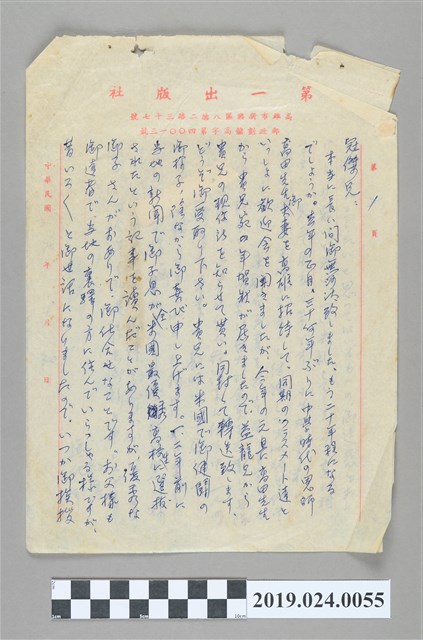 第一出版社
高雄市前興區八德二路三十七號
郵政劃撥高字第四〇〇一三號
第 1 頁
冠傑兄：
本当に長い間御無沙汰致しました。もう二十年現になる
でしょうか。去年の正月、三十何年ぶりに中共時代の恩師
高田先生御夫妻を高雄に招待して、同期のクラスメート達と
いっしょに歓迎会を開きましたが、今年の元旦に高田先生
から貴兄宛の年賀状が届きましたので、益龍兄から
貴兄の現住所を知らせて貰い、同封して轉送致します。
どうぞ御受取り下さい。貴兄には米國で御健闘の
御様子、陰ながら御喜び申し上げます。一、二年前に
当地の新聞で御子息が全米國最優秀高校に選抜
されたという記事を讀んだことがありますが、優秀な
御子さんがおありで、御仕合せなことです。お父様も
御達者で当地の裏驛の方に住んでいらっしゃる様ですが、
昔いろいろと御世話になりましたので、いつか御挨拶
中華民國 年 月 日
2019.024.0055